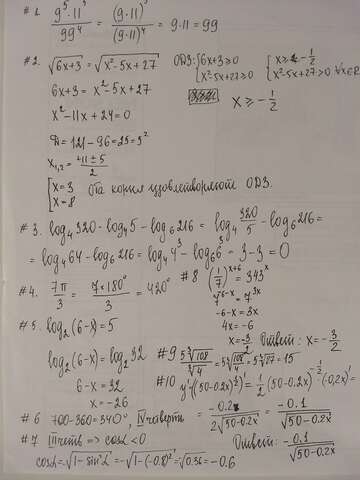 # 1. 9⁵·11⁴ / 99⁴ = (9·11)⁵ / (9·11)⁴ = 9·11 = 99
# 2. √6x+3 = √x²-5x+27 ОДЗ: {6x+3≥0 {x≥-1/2
{x²-5x+27≥0 {x²-5x+27>0 ∀x∈R
6x+3 = x²-5x+27
x ≥ -1/2
x²-11x+24=0
D = 121-96=25=5²
x₁,₂ = 11±5 / 2
[x=3
[x=8 Оба корня удовлетворяют ОДЗ.
# 3. log₄320 - log₄5 - log₆216 = log₄ 320/5 - log₆216 =
= log₄64 - log₆216 = log₄4³ - log₆6³ = 3-3=0
# 4. 7π/3 = 7×180°/3 = 420°
# 8 (1/7)^(x+6) = 343^x
7^(-6-x) = 7^(3x)
-6-x=3x
4x=-6
x=-3/2 Ответ: x=-3/2
# 5. log₂(6-x)=5
log₂(6-x)=log₂32
6-x=32
x=-26
# 9 5∛108 / ∛4 = 5∛108/4 = 5∛27 = 15
# 10 y'=((50-0.2x)^(1/2))' = 1/2 (50-0.2x)^(-1/2) · (-0,2x)' =
= -0.2 / 2√50-0.2x = -0.1 / √50-0.2x
Ответ: -0.1 / √50-0.2x
# 6 700-360=340°, IV четверть
# 7 III четь => cosα<0
cosα=-√1-sin²α = -√1-(-0.8)² = -√0.36 = -0.6